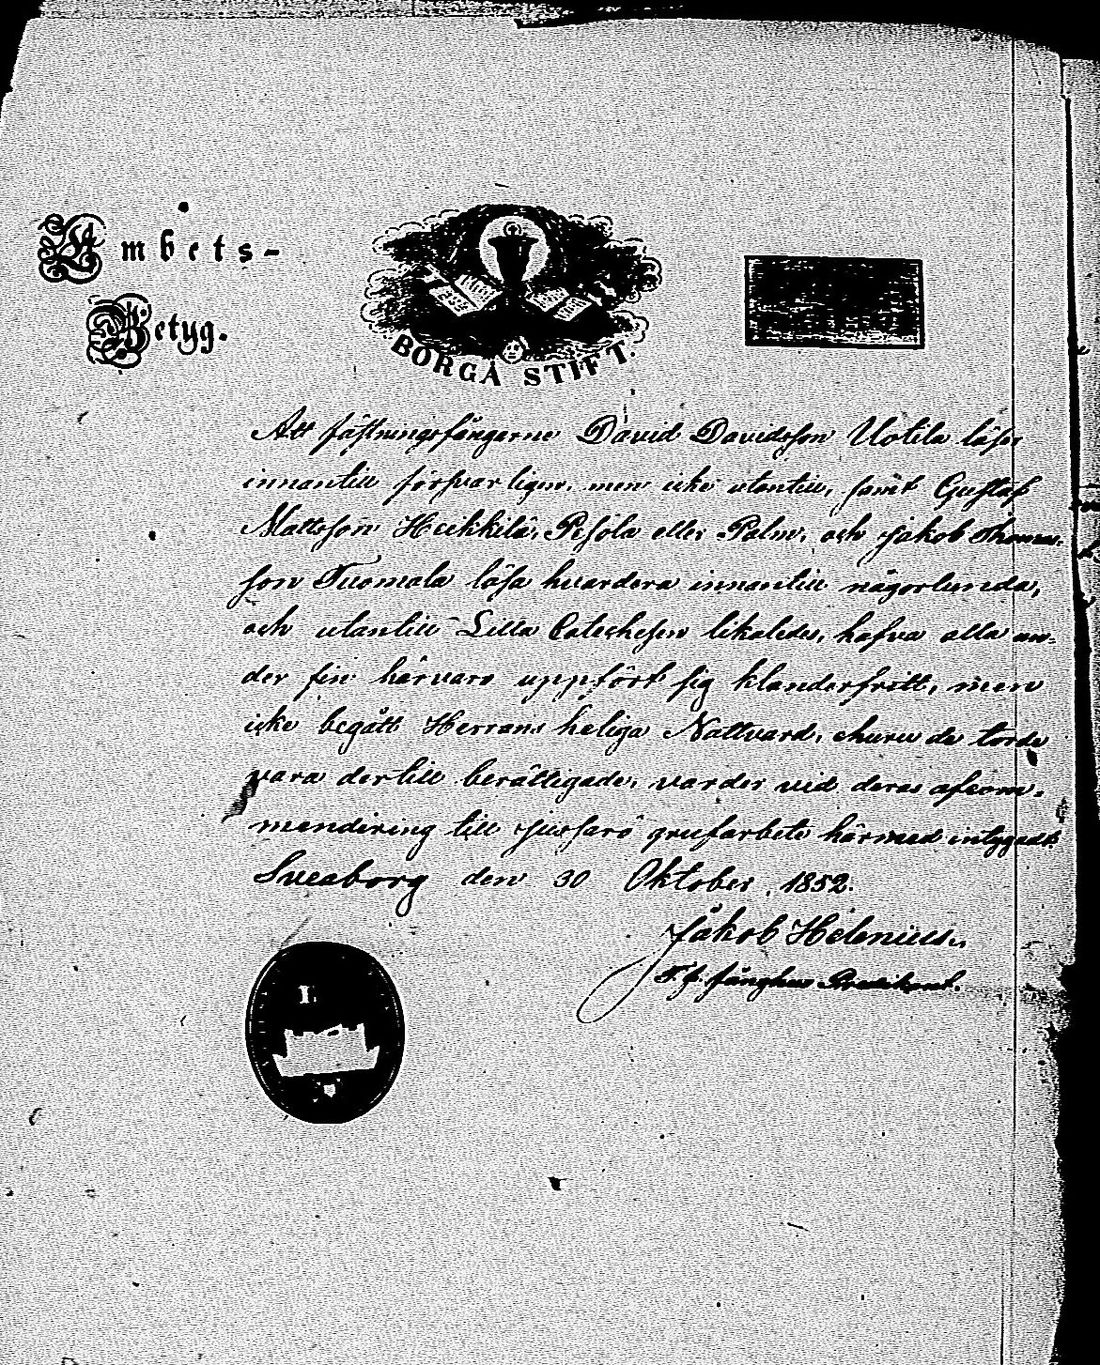 Ambets-
Betyg.
BORGÅ STIFT.
Att fästningsfångarne David Davidsson Uotila läser
innantill försvarligen, men icke utantill, samt Gustaf
Mattsson Heikkilä, Pesola eller Palm, och Jakob Thomas-
son Tuomala läsa hvardera innantill någorlunda,
och utantill Lilla Catechesen likaledes, hafva alla un-
der sin härvaro uppfört sig klanderfritt, men
icke begått Herrans heliga Nattvard, churu de torde
vara dertill berättigade, varder vid deras afcom-
mendering till Jussarö grufarbete härmed intygadt
Sveaborg den 30 Oktober 1852.
Jakob Helenius.
T. f. fånghus Predikant.
L